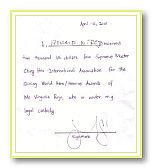 April 12, 2001
I,
received
ten thousand US dollars from Supreme Master
Ching Hai International Association for the
Shining World Hero/Heroine Awards of
Ms. Virginia Rojo, who is under my
legal custody.
Signature